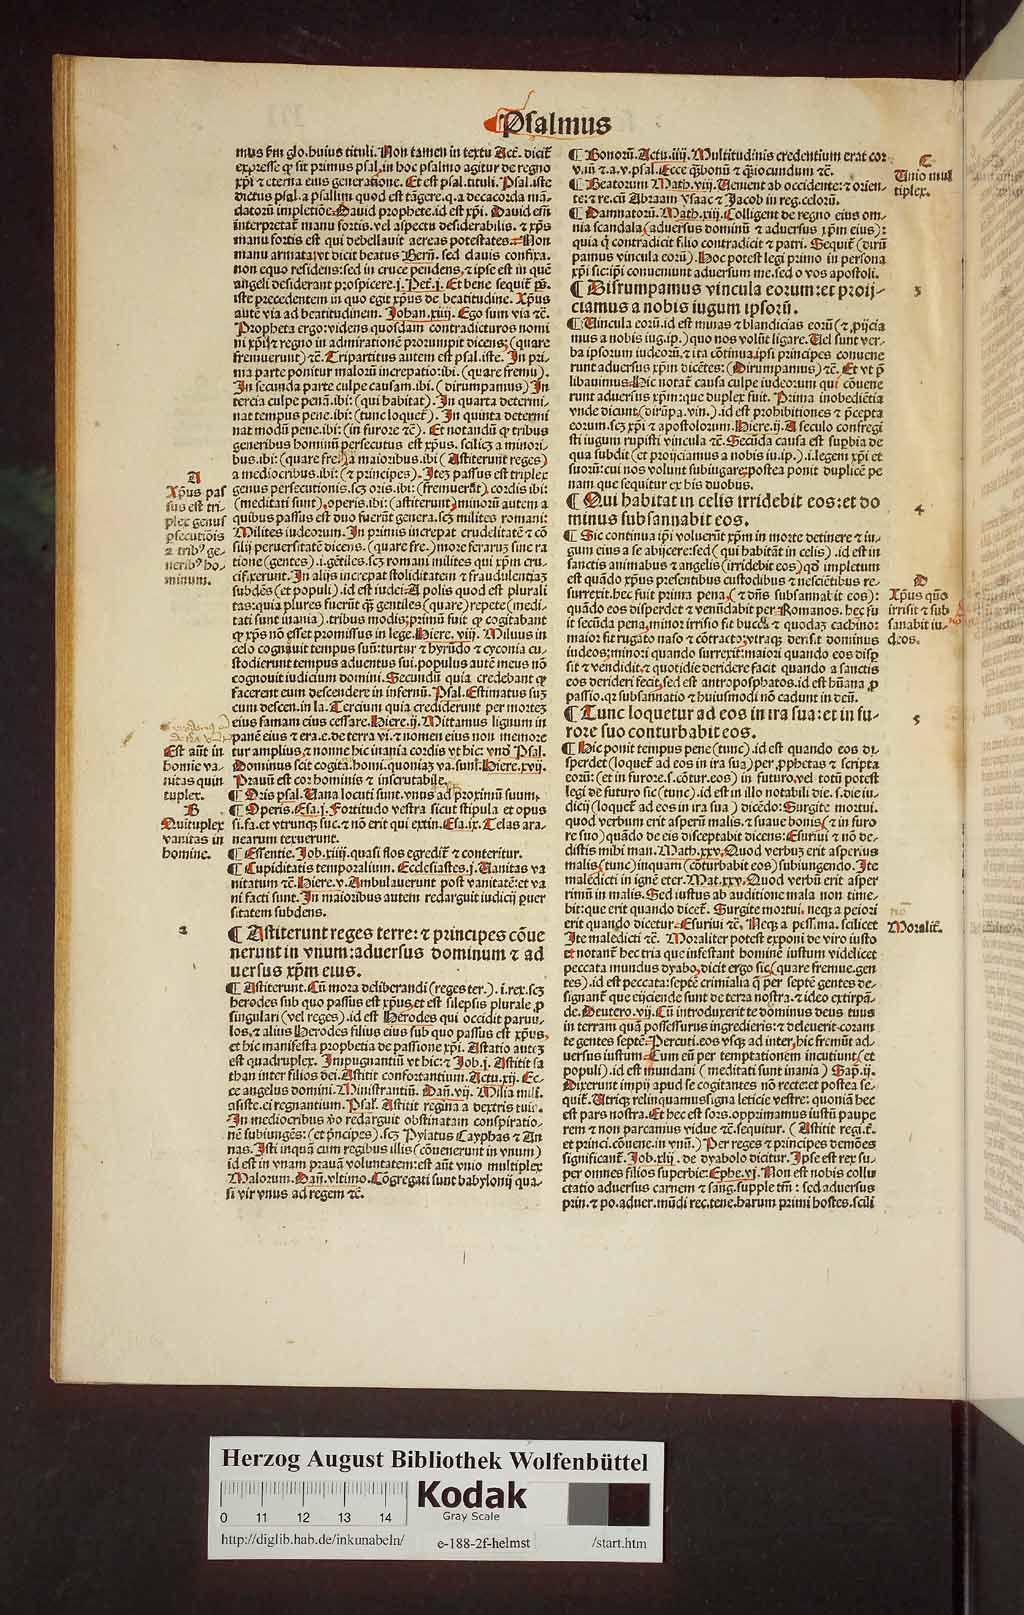 Psalmus
mus s̄m glo. huius tituli. Non tamen in textu Act̄. dicit̄
expresse ꝙ sit primus psal. in hoc psalmo agitur de regno
xp̄i ⁊ eterna eius generatione. Et est psal. tituli. Psal. iste
dictus psal. a psallim quod est tāgere. q. a decacorda mā-
datorū impletiōe. Dauid prophete. id est xp̄i. Dauid em̄
interpretat̄ manu fortis. vel aspectu desiderabilis. ⁊ xp̄s
manu fortis est qui debellauit aereas potestates. Non
manu armata. vt dicit beatus Bern̄. sed clauis confixa.
non equo residens: sed in cruce pendens. ⁊ ipse est in quē
angeli desiderant prospicere. j. Pet̄. j. Et bene sequit̄ p̄s.
iste precedentem in quo egit xp̄us de beatitudine. Xp̄us
autē via ad beatitudinem. Johan. xiiij. Ego sum via ⁊c̄.
Propheta ergo: videns quosdam contradicturos nomi
ni xp̄i ⁊ regno in admirationē prorumpit dicens: (quare
fremuerunt) ⁊c̄. Tripartitus autem est psal. iste. In pri-
ma parte ponitur malorū increpatio: ibi. (quare fremu).
In secunda parte culpe causam. ibi. (dirumpamus) In
tercia culpe penā. ibi: (qui habitat). In quarta determi-
nat tempus pene. ibi: (tunc loquet̄). In quinta determi
nat modū pene. ibi: (in furore ⁊c̄). Et notandū ꝙ tribus
generibus hominū persecutus est xp̄us. scilicꝫ a minori-
bus. ibi: (quare fre.) a maioribus. ibi (Astiterunt reges)
a mediocribus. ibi: (⁊ principes). Itez passus est triplex
genus persecutionis. scꝫ oris. ibi: (fremuerūt). cordis ibi:
(meditati sunt). operis. ibi: (astiterunt) minorū autem a
quibus passus est duo fuerūt genera. scꝫ milites romani:
Milites iudeorum. In primis increpat crudelitatē ⁊ cō
silij peruersitatē dicens. (quare fre.) more feraruꝫ sine ra
tione (gentes). i. gētiles. scꝫ romani milites qui xp̄m cru-
cifixerunt. In alijs increpat stoliditatem ⁊ fraudulentiaꝫ
subdēs (et populi). id est iudei. A polis quod est plurali
tas: quia plures fuerūt ꝗ̄ gentiles (quare) repete (medi-
tati sunt inania). tribus modis; primū fuit ꝙ cogitabant
ꝙ xp̄s nō esset promissus in lege. Hiere. viij. Miluus in
celo cognouit tempus suū: turtur ⁊ hyrūdo ⁊ cyconia cu-
stodierunt tempus aduentus sui. populus autē meus nō
cognouit iudicium domini. Secundū quia credebant ꝙ
facerent eum descendere in infernū. Psal. Estimatus suꝫ
cum descen. in la. Tercium quia crediderunt per mortez
eius famam eius cessare. Hiere. ij. Mittamus lignum in
panē eius ⁊ era. e. de terra vi. ⁊ nomen eius non memore
tur amplius ⁊ nonne hic inania cordis vt hic: vn̄ō Psal.
Dominus scit cogita. homi. quoniaꝫ va. sunt. Hiere. xvij.
Prauū est cor hominis ⁊ inscrutabile.
¶ Oris psal. Uana locuti sunt. vnus ad proximū suum.
¶ Operis. Esa. j. Fortitudo vestra sicut stipula et opus
si. fa. et vtrunqꝫ suc. ⁊ nō erit qui extin. Esa. ix. Telas ara-
nearum texuerunt.
¶ Essentie. Job. xiiij. quasi flos egredit̄ ⁊ conteritur.
¶ Cupiditatis temporalium. Ecclesiastes. j. Uanitas va
nitatum ⁊c̄. Hiere. v. Ambulauerunt post vanitatē: et va
ni facti sunt. In maioribus autem redarguit iudicij ꝑuer
sitatem subdens.
¶ Astiterunt reges terre: ⁊ principes cōue
nerunt in vnum: aduersus dominum ⁊ ad
uersus xp̄m eius.
¶ Astiterunt. Cū mora deliberandi (reges ter.). i. rex. scꝫ
herodes sub quo passus est xp̄us. et est silepsis plurale ꝓ
singulari (vel reges). id est Herodes qui occidit paruu-
los. ⁊ alius Herodes filius eius sub quo passus est xp̄us.
et hic manifesta prophetia de passione xp̄i. Astatio autez
est quadruplex. Impugnantiū vt hic: ⁊ Job. j. Astitit sa
than inter filios dei. Astitit confortantium. Actu. xij. Ec-
ce angelus domini. Ministrantiū. Dan̄. vij. Milia mili.
assiste. ei regnantium. Psal. Astitit regina a dextris tuis.
In mediocribus v̄o redarguit obstinatam conspiratio-
nē subiungēs: (et p̄ncipes). scꝫ Pylatus Cayphas ⁊ An
nas. Isti inquā cum regibus illis (cōuenerunt in vnum)
id est in vnam prauā voluntatem: est aūt vnio multiplex
Malorum. Dan̄. vltimo. Cōgregati sunt babylonij qua-
si vir vnus ad regem ⁊c̄.
A
Xp̄us pas
sus est tri-
plex genus
ꝑsecutiōis
a tribꝰ ge-
neribꝰ ho-
minum.
Est aūt in
homie va-
nitas quin
tuplex.
B
Quituplex
vanitas in
homine.
2
¶ Bonorū. Actu. iiij. Multitudinis credentium erat cor
v. in ⁊ a. v. psal. Ecce q̄bonū ⁊ q̄iocundum ⁊c̄.
¶ Beatorum Math. viij. Uenient ab occidente: ⁊ orien-
te: ⁊ re. cū Abraam Ysaac ⁊ Jacob in reg. celorū.
¶ Damnatorū. Math. xiij. Colligent de regno eius om-
nia scandala (aduersus dominū ⁊ aduersus xp̄m eius):
quia q̄ contradicit filio contradicit ⁊ patri. Sequit̄ (dirū
pamus vincula eorū). Hoc potest legi primo in persona
xp̄i sic ip̄i conueniunt aduersum me. sed o vos apostoli.
¶ Disrumpamus vincula eorum: et proij-
ciamus a nobis iugum ipsorū.
¶ Uincula eorū. id est minas ⁊ blandicias eorū (⁊ ꝓijcia
mus a nobis iug. ip.) quo nos volūt ligare. Uel sunt ver-
ba ipsorum iudeorū. ⁊ ita cōtinua. ipsi principes conuene
runt aduersus xp̄m dicētes: (Dirumpamus) ⁊c̄. Et vt p̄
libauimus. Hic notat̄ causa culpe iudeorum qui cōuene
runt aduersus xp̄m: que duplex fuit. Prima inobediētia
vnde dicunt. (dirūpa. vin.). id est prohibitiones ⁊ p̄cepta
eorum. scꝫ xp̄i ⁊ apostolorum. Hiere. ij. A seculo confregi
sti iugum rupisti vincula ⁊c̄. Secūda causa est supbia de
qua subdit (et proijciamus a nobis iu. ip.). i. legem xp̄i et
suorū: cui nos volunt subiugare. postea ponit duplicē pe
nam que sequitur ex his duobus.
¶ Qui habitat in celis irridebit eos: et do
minus subsannabit eos.
¶ Sic continua ip̄i voluerūt xp̄m in morte detinere ⁊ iu-
gum eius a se abijcere: sed (qui habitāt in celis). id est in
sanctis animabus ⁊ angelis (irridebit eos) qd̄ impletum
est quādo xp̄us presentibus custodibus ⁊ nescietibus re-
surrexit. hec fuit prima pena. (⁊ dn̄s subsannabit eos):
quādo eos disperdet ⁊ venūdabit per Romanos. hec fu
it secūda pena. minor irrisio fit bucca ⁊ quodaꝫ cachino:
maior fit rugato naso ⁊ cōtracto: vtraqꝫ derisit dominus
iudeos; minori quando surrexit: maiori quando eos disp̄
sit ⁊ vendidit. ⁊ quotidie deridere facit quando a sanctis
eos derideri fecit. sed est antroposphatos. id est hūana ꝓ
passio. qꝛ subsannatio ⁊ huiusmodi nō cadunt in deū.
¶ Tunc loquetur ad eos in ira sua: et in fu-
rore suo conturbabit eos.
¶ Hic ponit tempus pene (tunc). id est quando eos di-
sperdet (loquet̄ ad eos in ira sua) per ꝓphetas ⁊ scripta
eorū: (et in furore. s. cōtur. eos) in futuro. vel totū potest
legi de futuro sic (tunc). id est in illo notabili die. s. die iu-
dicij (loquet̄ ad eos in ira sua) dicēdo: Surgite mortui.
quod verbum erit asperū malis. ⁊ suaue bonis (⁊ in furo
re suo) quādo de eis disceptabit dicens: Esuriui ⁊ nō de-
distis mihi man. Math. xxv. Quod verbuꝫ erit asperius
malis (tunc) inquam (cōturbabit eos) subiungendo. Ite
maledicti in ignē eter. Mat. xxv. Quod verbū erit asper
rimū in malis. Sed iustus ab auditione mala non time-
bit: que erit quando dicet̄. Surgite mortui. neqꝫ a peiori
erit quando dicetur. Esuriui ⁊c̄. Neqꝫ a pessima. scilicet
Ite maledicti ⁊c̄. Moraliter potest exponi de viro iusto
et notant̄ hec tria que infestant hominē iustum videlicet
peccata mundus dyabo. dicit ergo sic (quare fremue. gen
tes). id est peccata: septē crimialia q̄ per septē gentes de-
signant̄ que eijciende sunt de terra nostra. ⁊ ideo extirpā-
de. Deutero. vij. Cū introduxerit te dominus deus tuus
in terram quā possessurus ingredieris: ⁊ deleuerit coram
te gentes septē. Percuti. eos vsqꝫ ad inter. hic fremūt ad-
uersus iustum. Cum eū per temptationem incutiunt (et
populi). id est mundani (meditati sunt inania) Sap. ij.
Dixerunt impij apud se cogitantes nō recte: et postea se-
quit̄. Utriqꝫ relinquamus signa leticie vestre: quoniā hec
est pars nostra. Et hec est sors. opprimamus iustū paupe
rem ⁊ non parcamus vidue ⁊c̄. sequitur. (Astitit regi. t̄.
et princi. cōuene. in vnū.) Per reges ⁊ principes demōes
significant̄. Job. xlij. de dyabolo dicitur. Ipse est rex su-
per omnes filios superbie: Ephe. vj. Non est nobis collu
ctatio aduersus carnem ⁊ sang. supple tm̄: sed aduersus
prin. ⁊ po. aduer. mūdi rec. tene. harum primi hostes. scili
C
Unio mul
tiplex.
3
4
D
Xp̄us qūo
irrisit ⁊ sub
sanabit iu-
deos.
5
Moralit̄.
Herzog August Bibliothek Wolfenbüttel
0 11 12 13 14
Kodak
Gray Scale
http://diglib.hab.de/inkunabeln/ e-188-2f-helmst /start.htm